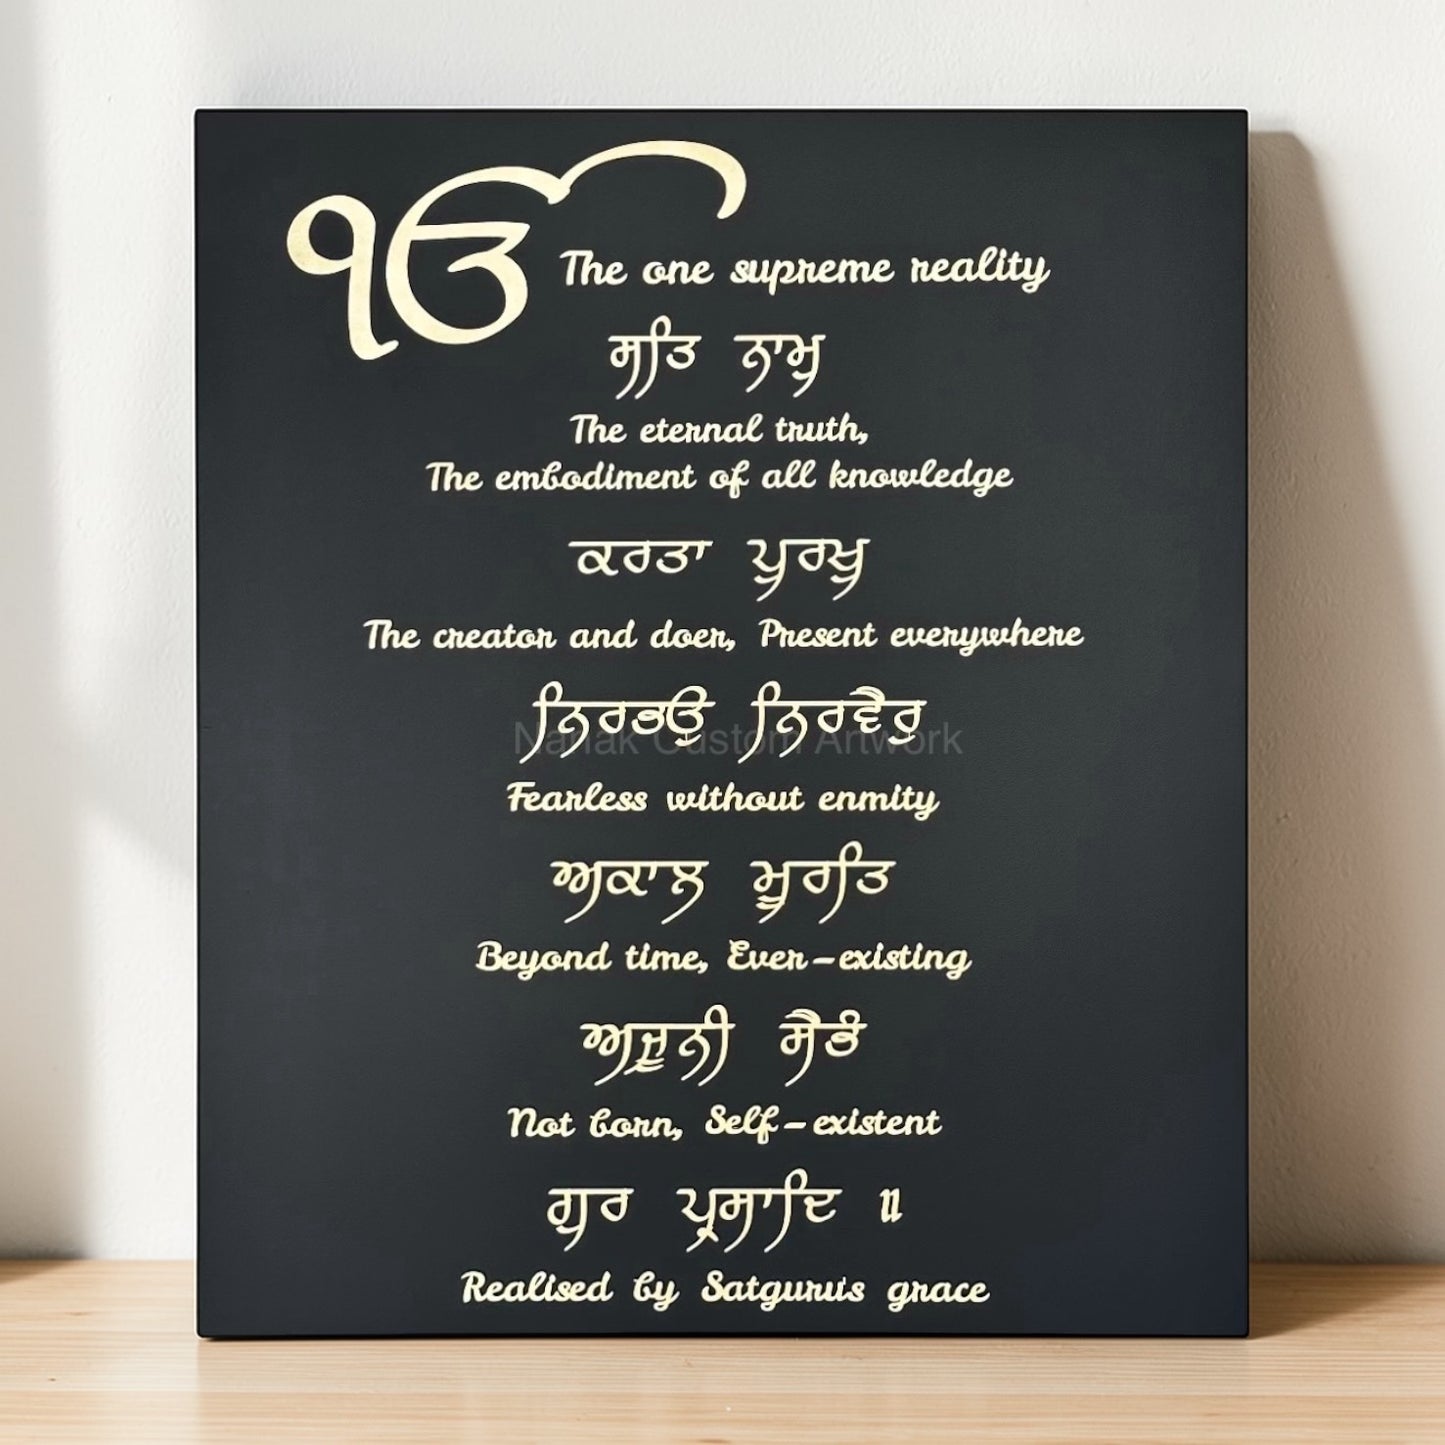 ੴ The one supreme reality
ਸਤਿ ਨਾਮੁ
The eternal truth,
The embodiment of all knowledge
ਕਰਤਾ ਪੁਰਖੁ
The creator and doer, Present everywhere
ਨਿਰਭਉ ਨਿਰਵੈਰੁ
Nanak Custom Artwork
Fearless without enmity
ਅਕਾਲ ਮੂਰਤਿ
Beyond time, Ever-existing
ਅਜੂਨੀ ਸੈਭੰ
Not born, Self-existent
ਗੁਰ ਪ੍ਰਸਾਦਿ ॥
Realised by Satguru's grace